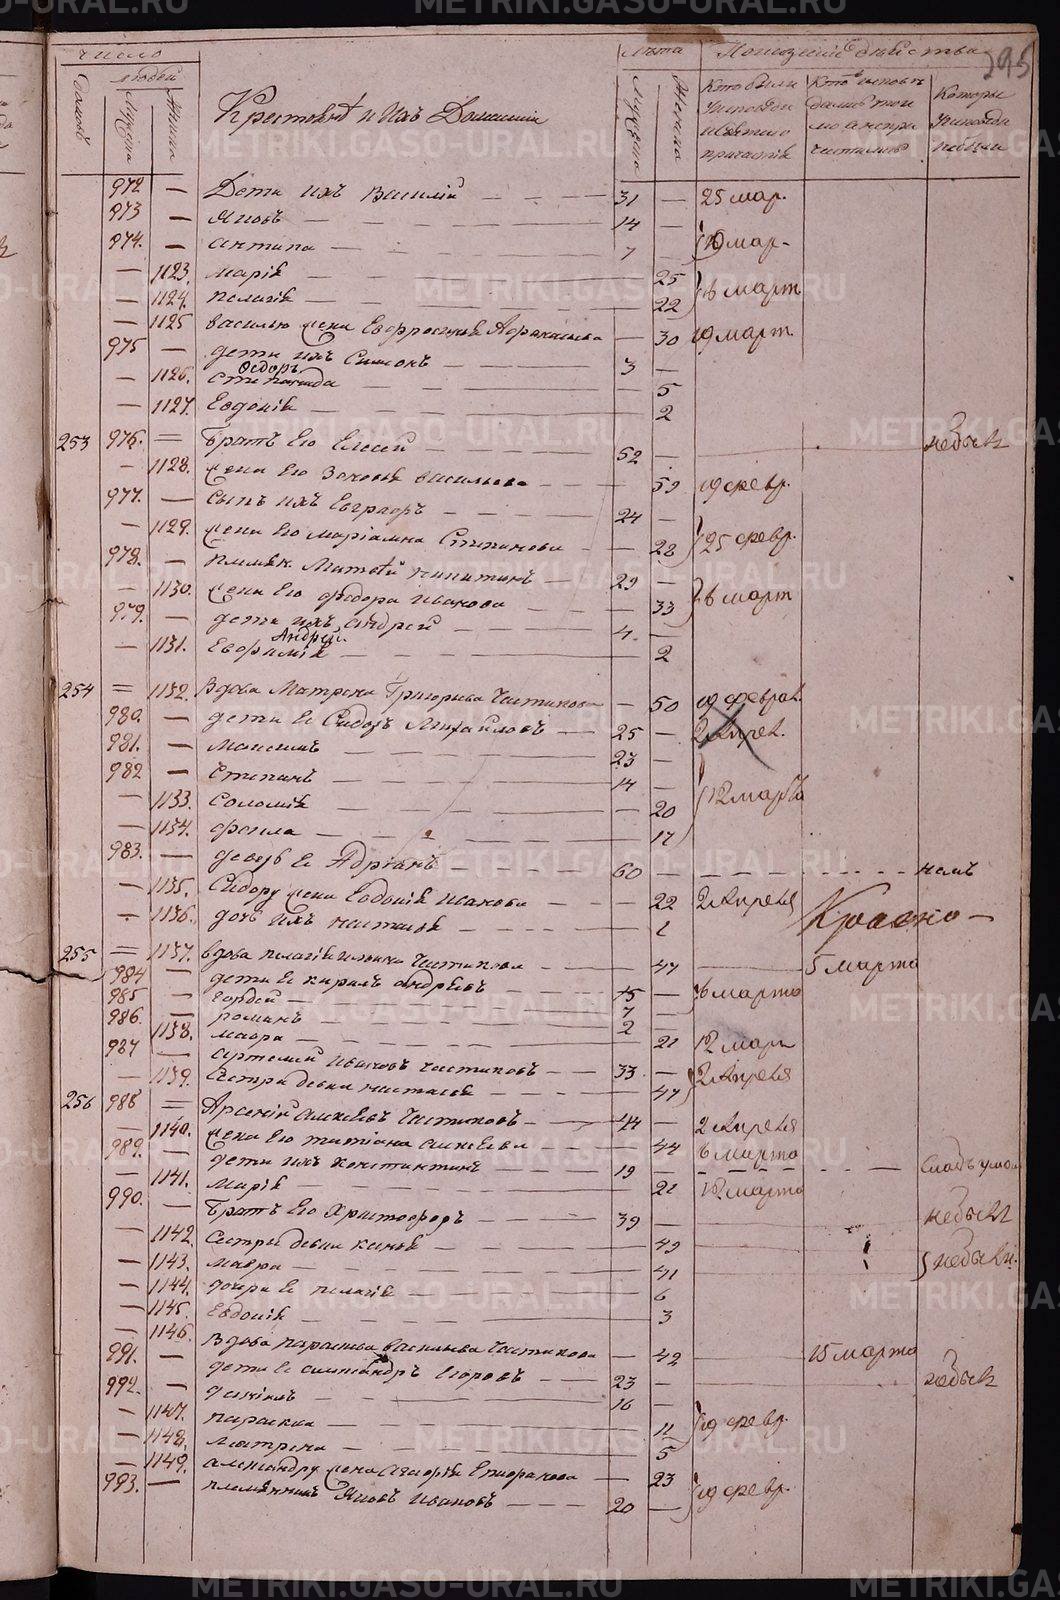 число
Лѣта
295
Домовъ
людей
Мужеска
Женска
Крестьянѣ и Ихъ Домашнiи
Мужеска
Женска
Кто были
Исповѣди
и святаго
причастiя
Которые
Исповѣди
небыли
972 — Дети ихъ Василiй 31 — 25 мар.
973 — Яковъ 14 —
974. — антипа 7 — 10 мар.
— 1123. марiя 25
— 1124. пелагiя 22 6 март
— 1125 василью жена Евфросинья Афонасьева — 30 19 март.
975 — дети ихъ Симионъ 3 —
Ѳедоръ
— 1126. степанида 5
— 1127. Евдокiя 2
253 976. = братъ Его Елисей 52 — небылъ
— 1128. жена Его Зиновья васильева 59 19 февр.
977. — сынъ ихъ Евграфъ 24 —
— 1129. жена Его марiамна Степанова — 22 25 февр.
978. — племян. Матвѣй никитинъ 29 —
— 1130. жена Его федора Иванова 33 6 март
979. — дети ихъ андрей 4. —
Андрей.
— 1131. Евфимiя 2
254 = 1132. Вдова Матрена Григорьева Чистякова — 50 19 феврал.
980. — дети Ея Сидоръ Михайловъ 25 — 2 Апрел.
981. — максимъ 23 —
982 — степанъ 14 —
— 1133. Соломiя 20 12 марта
— 1134. фекла 17
983. — деверь Ея Адрiанъ 60 — немъ
— 1135. Сидору жена Евдокiя Иванова 22 2 Апреля
— 1136. дочь ихъ настасья 1
255 = 1137. вдова пелагiя ильина Чистякова 47 5 марта
984 — дети Ея кирилъ андреевъ 15 — 6 марта
985 — гордей 7
986. — романъ 2 —
— 1138. мавра 21 12 март
987 — артемiй Ивановъ чистяковъ 33 — 2 Апреля
— 1139. сестра девка настасья 47
256 988 = Арсенiй алексеевъ Чистяковъ 44 — 2 Апреля
— 1140. жена Его татiана алексеева 44 6 марта
989. — дети ихъ константинъ 19 — слабъ умом
— 1141. марiя 21 12 марта
990. — братъ Его Христофоръ 39 — небылъ
— 1142. сестры девки ксенья 49
— 1143. мавра 41 небыли.
— 1144. дочери Ея пелагiя 6
— 1145. Евдокiя 3
— 1146. Вдова парасковья васильева Чистякова — 42 15 марта
991. — дети Ея александръ Егоровъ 23 — небылъ
992. — данiилъ 16 —
— 1147. параскева 11 19 февр.
— 1148. матрена 5
— 1149. александру жена Агафiя Епифанова — 23
993. — племянникъ Яковъ Ивановъ 20 — 19 февр.
METRIKI.GASO-URAL.RU